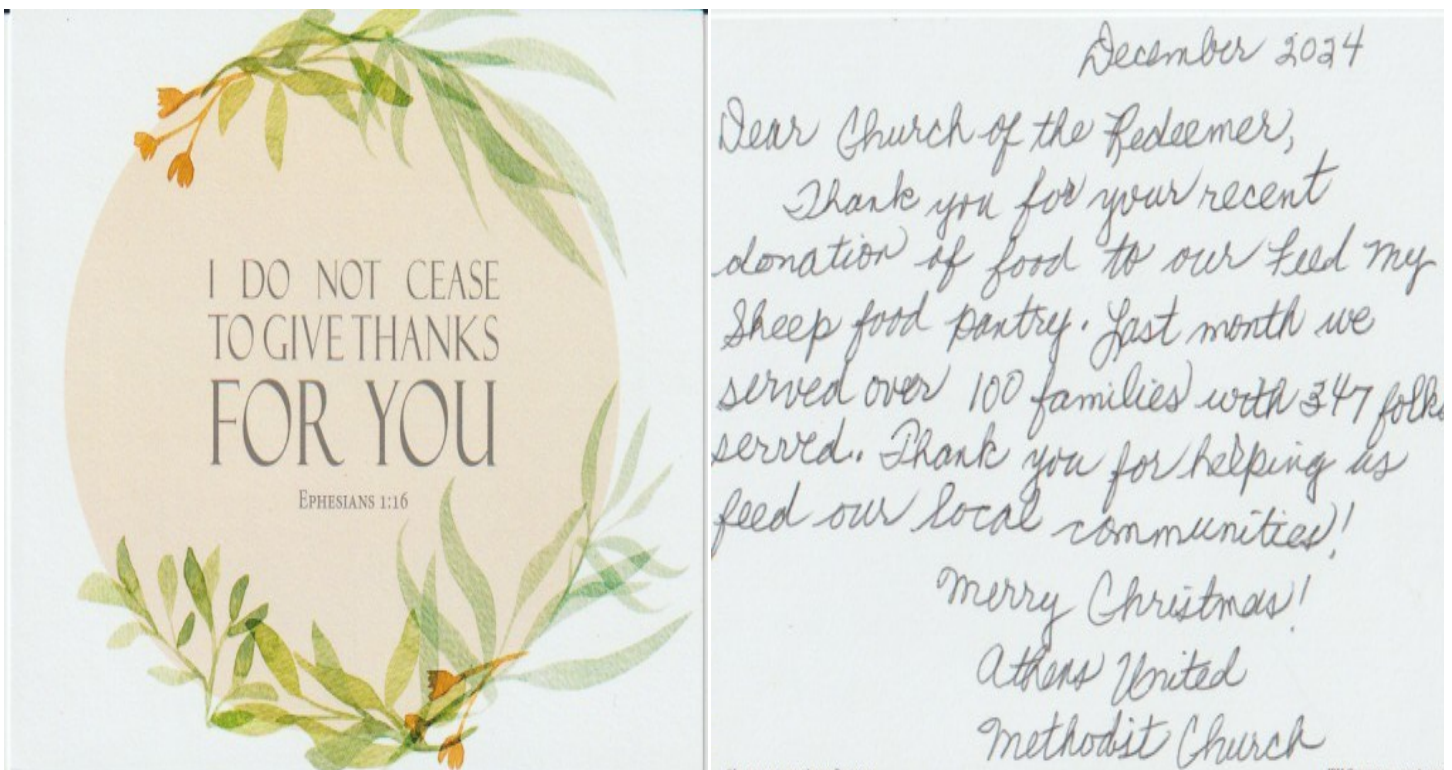 I DO NOT CEASE
TO GIVE THANKS
FOR YOU
EPHESIANS 1:16
December 2024
Dear Church of the Redeemer,
Thank you for your recent
donation of food to our Feed My
Sheep food pantry. Last month we
served over 100 families with 347 folks
served.. Thank you for helping us
feed our local communities!
Merry Christmas!
Athens United
Methodist Church